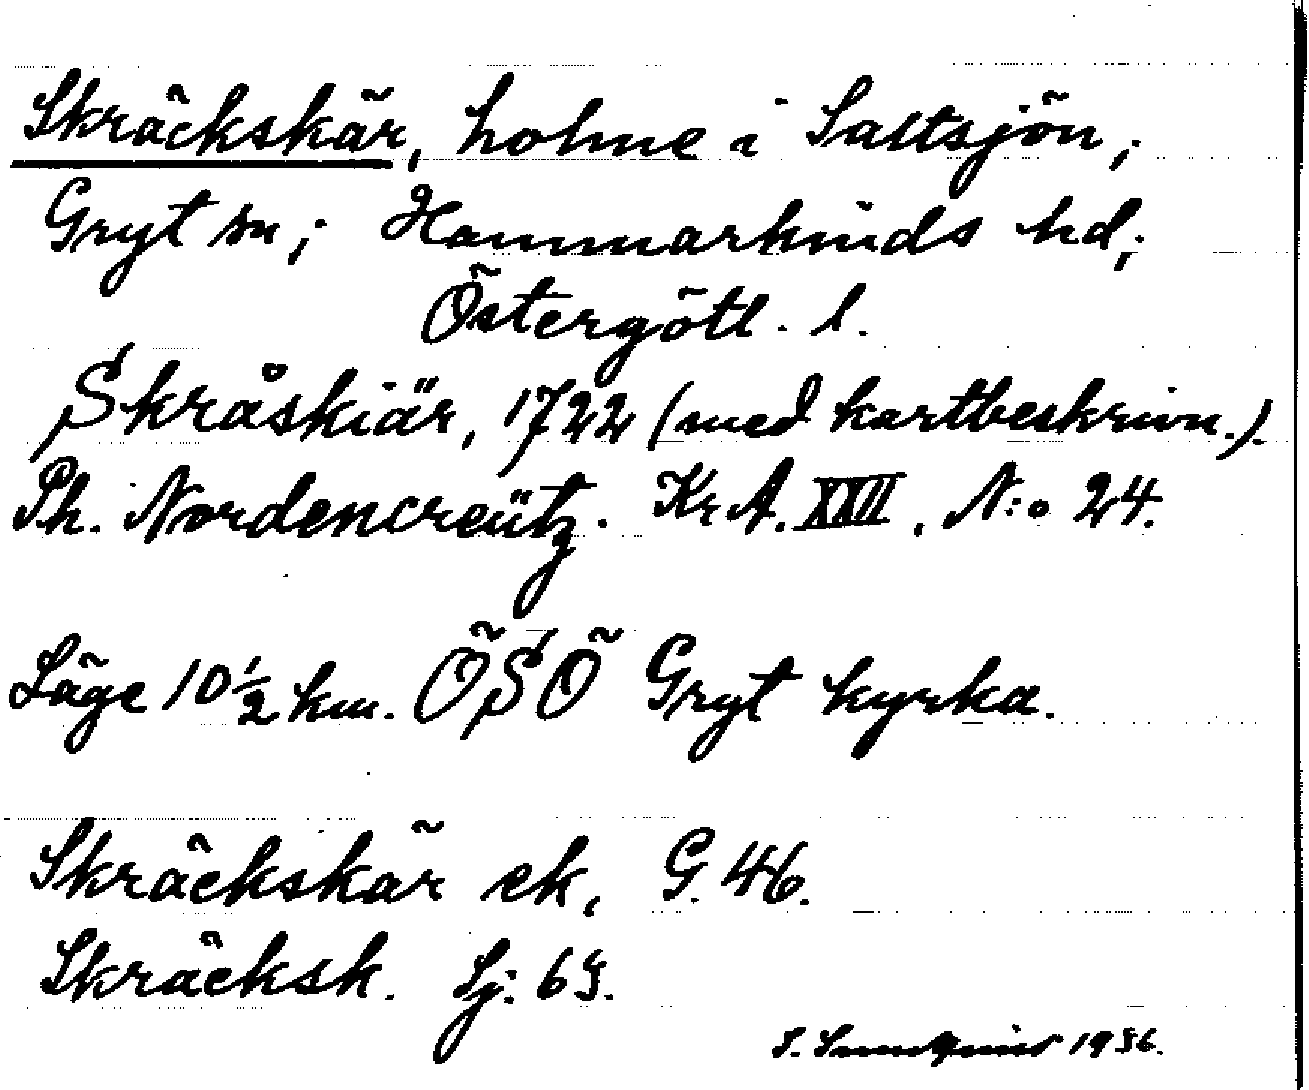 Skräckskär, holme i Saltsjön;
Gryt sn; Hammarkinds hd;
Östergötl. l.
Skråskiär, 1722 (med kartbeskrivn.).
Ph. Nordencreütz. Kr. A. XXII, N:o 24.
Läge 10 1/2 km. ÖSÖ Gryt kyrka.
Skräckskär ek, G. 46.
Skräcksk. Sj. 65.
S. Sundquist 1936.